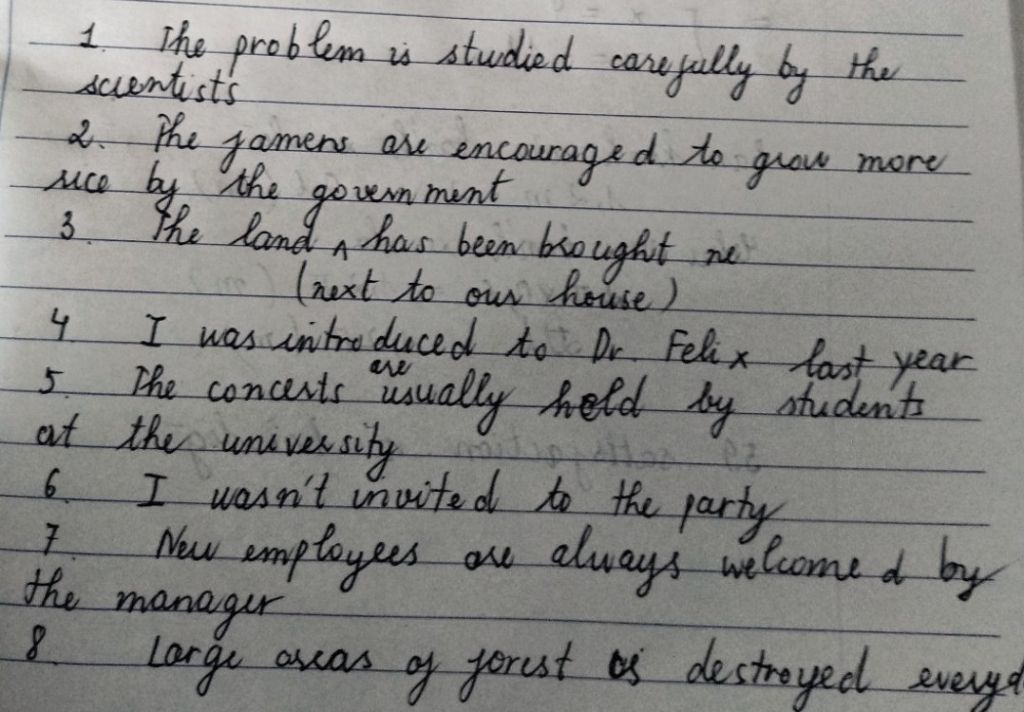 1. The problem is studied carefully by the
scientists
2. The farmers are encouraged to grow more
rice by the government
3. The land ^ has been brought ne
(next to our house)
4 I was introduced to Dr. Felix last year
are
5. The concerts usually held by students
at the university
6. I wasn't invited to the party
7. New employees are always welcomed by
the manager
8. Large areas of forest is destroyed everyd